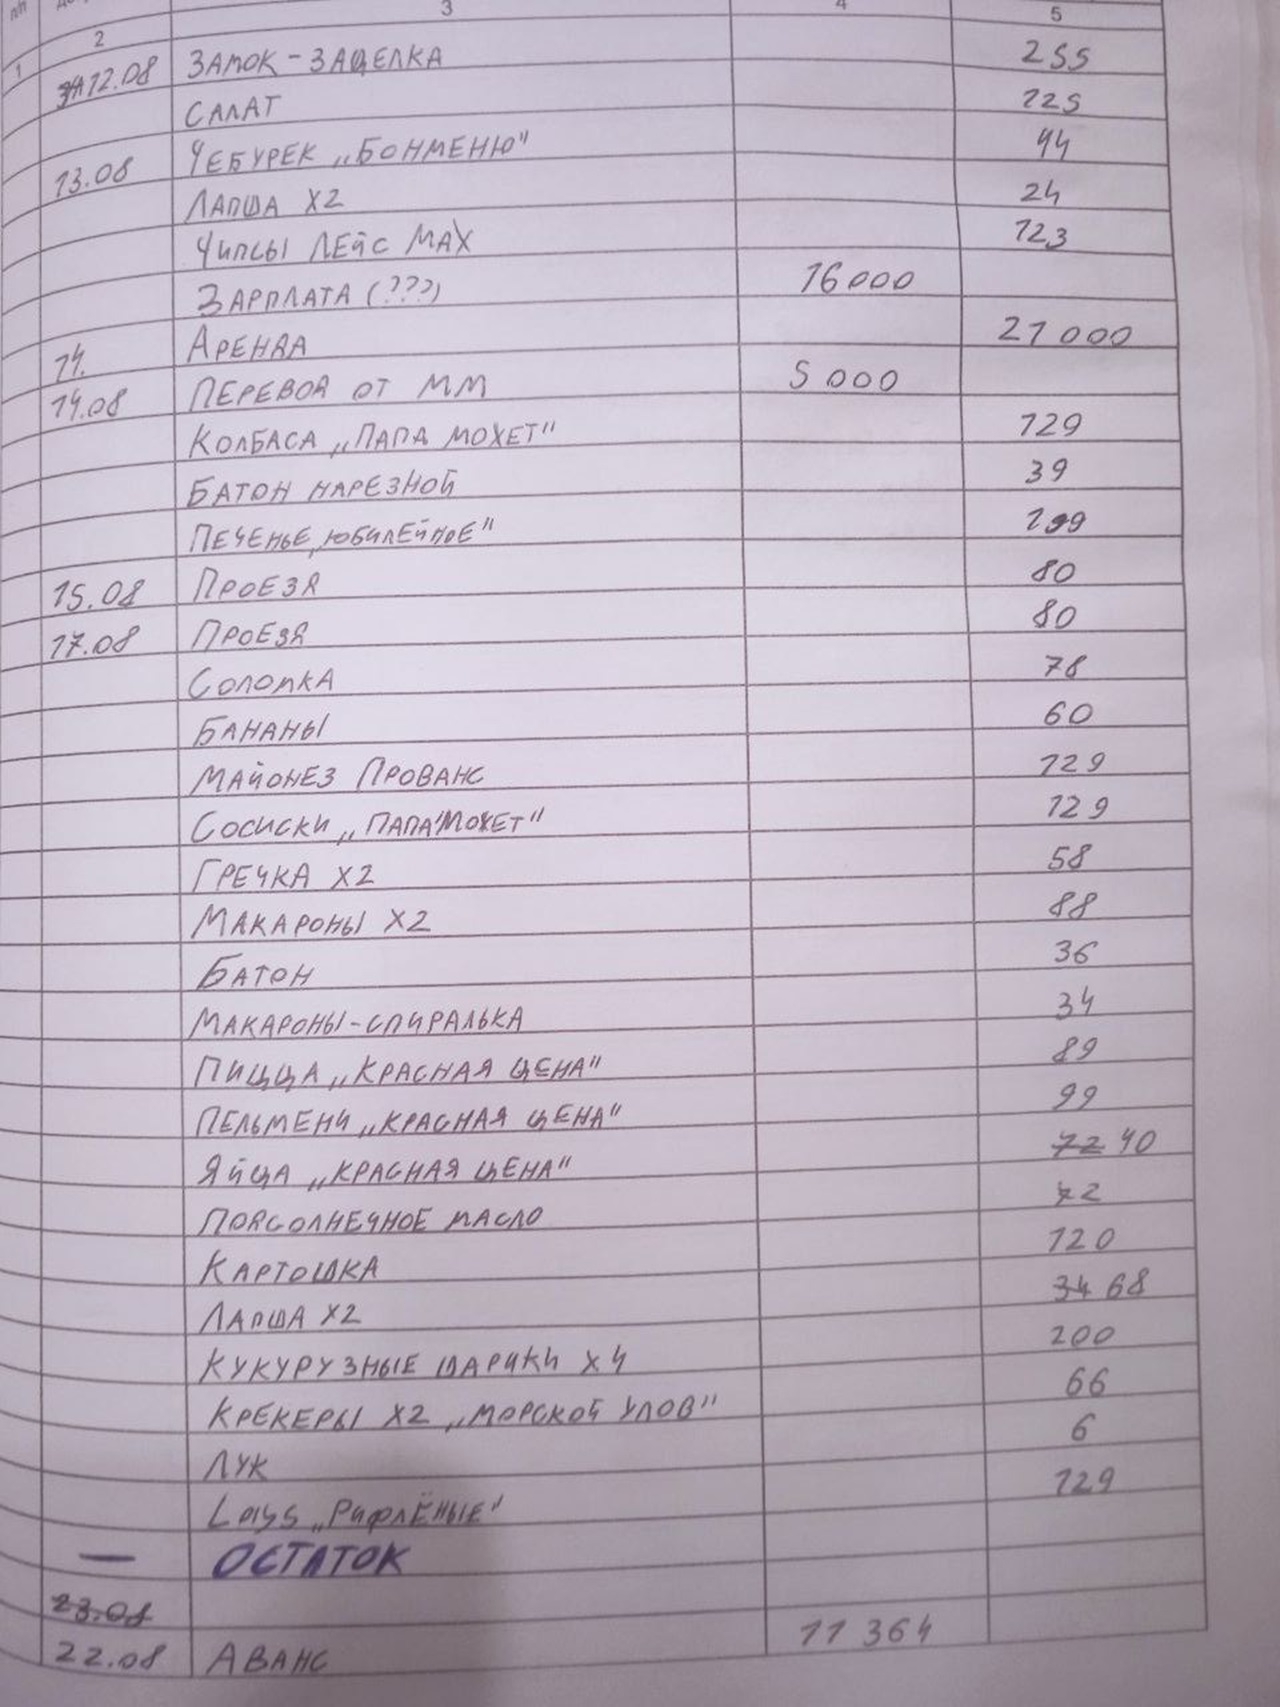 2 3 4 5
1
12.08 ЗАМОК-ЗАЩЕЛКА 255
САЛАТ 125
13.08 ЧЕБУРЕК „БОНМЕНЮ" 94
ЛАПША X2 24
ЧИПСЫ ЛЕЙС MAX 123
ЗАРПЛАТА (???) 16000
14. АРЕНДА 21 000
14.08 ПЕРЕВОД ОТ ММ 5 000
КОЛБАСА „ПАПА МОЖЕТ" 129
БАТОН НАРЕЗНОЙ 39
ПЕЧЕНЬЕ „ЮБИЛЕЙНОЕ"
15.08 ПРОЕЗД 80
17.08 ПРОЕЗД 80
СОЛОМКА 78
БАНАНЫ 60
МАЙОНЕЗ ПРОВАНС 129
СОСИСКИ „ПАПА МОЖЕТ" 129
ГРЕЧКА X2 58
МАКАРОНЫ X2 88
БАТОН 36
МАКАРОНЫ-СПИРАЛЬКА 34
ПИЦЦА „КРАСНАЯ ЦЕНА" 89
ПЕЛЬМЕНИ „КРАСНАЯ ЦЕНА" 99
ЯЙЦА „КРАСНАЯ ЦЕНА" 72 40
ПОДСОЛНЕЧНОЕ МАСЛО 72
КАРТОШКА 120
ЛАПША X2 34 68
КУКУРУЗНЫЕ ШАРИКИ X4 200
КРЕКЕРЫ X2 „МОРСКОЙ УЛОВ" 66
ЛУК 6
Lays „РИФЛЁНЫЕ" 129
— ОСТАТОК
23.08
22.08 АВАНС 11 364